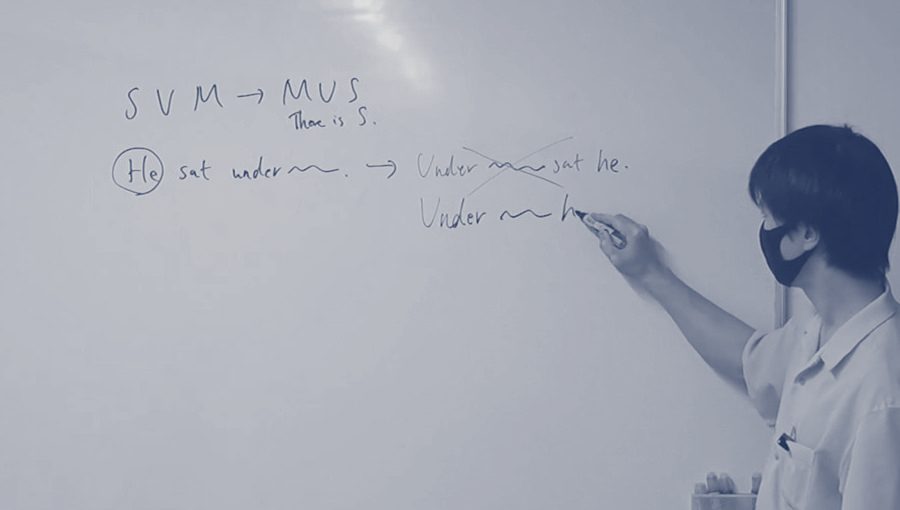 S V M → M V S
There is S.
He sat under ~~. → Under ~~ sat he.
Under ~~ h